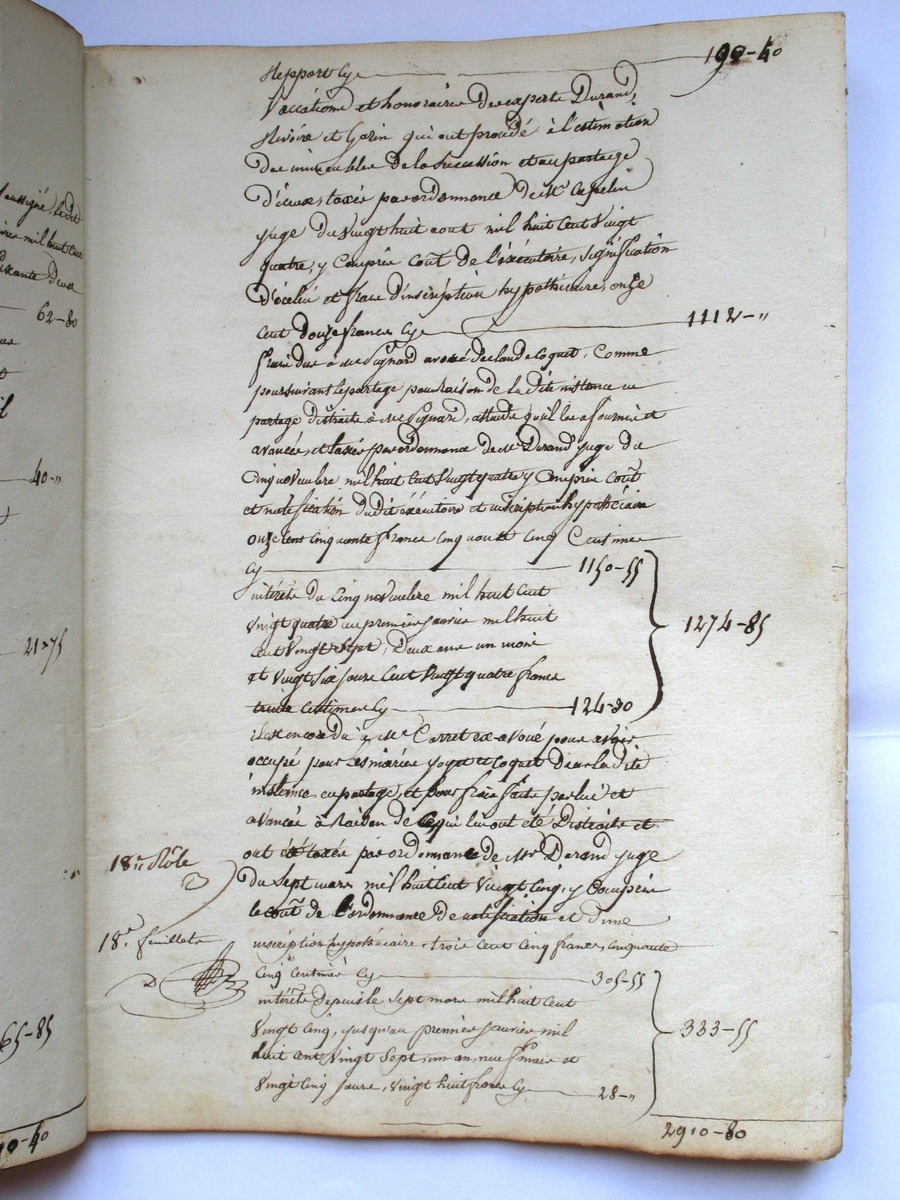 ssigné, ledit
mil huit cent
soixante Deux
62-80
40-"
21-75
65-85
90-40
Report Cy 190-40
Vaccations et honoraires des experts Durand,
Rivoire et Garin qui ont procédé à l'estimation
des immeubles de la succession et au partage
d'iceux, taxés par ordonnance de Mr
juge du Vingt huit aout mil huit Cent Vingt
quatre, y Compris Cout de l'éxécutoire, signification
D'icelui et frais D'inscription hypothécaire, onze
Cent Douze francs Cy 1112-"
frais dus à Me avoué de Claude Coquet, Comme
poursuivant le partage pour raison de la dite instance en
partage distraits à Me, attendu qu'il les a fournis et
avancés, et taxés par ordonnance de Mr Durand juge du
Cinq novembre mil huit Cent Vingt quatre y Compris Cout
et notification dudit éxécutoire et inscription hypothécaire
onze Cent Cinquante francs Cinquante Cinq Centimes
Cy 1150-55
intérêts du Cinq novembre mil huit Cent
Vingt quatre au premier janvier mil huit
Cent Vingt Sept, Deux ans un mois
et Vingt Six jours Cent Vingt quatre francs
trente Centimes Cy 124-30
1274-85
il est encore Dû à Me Carret ex-avoué pour avoir
occupé pour les mariés et Coquet Dans la dite
instance en partage, et pour frais faits par lui et
avancés à Raison de Ce qui lui ont été Distraits et
ont été taxés par ordonnance de Mr Durand juge
Du Sept mars mil huit Cent Vingt Cinq, y Compris
le Cout de l'ordonnance De notification et d'une
inscription hypothécaire, trois Cent Cinq francs, Cinquante
Cinq Centimes Cy 305-55
intérêts depuis le Sept mars mil huit Cent
Vingt Cinq, jusqu'au premier janvier mil
huit cent Vingt Sept, un an, neuf mois et
Vingt Cinq jours, Vingt huit francs Cy 28-"
333-55
2910-80
18e Rôle
18e feuillet